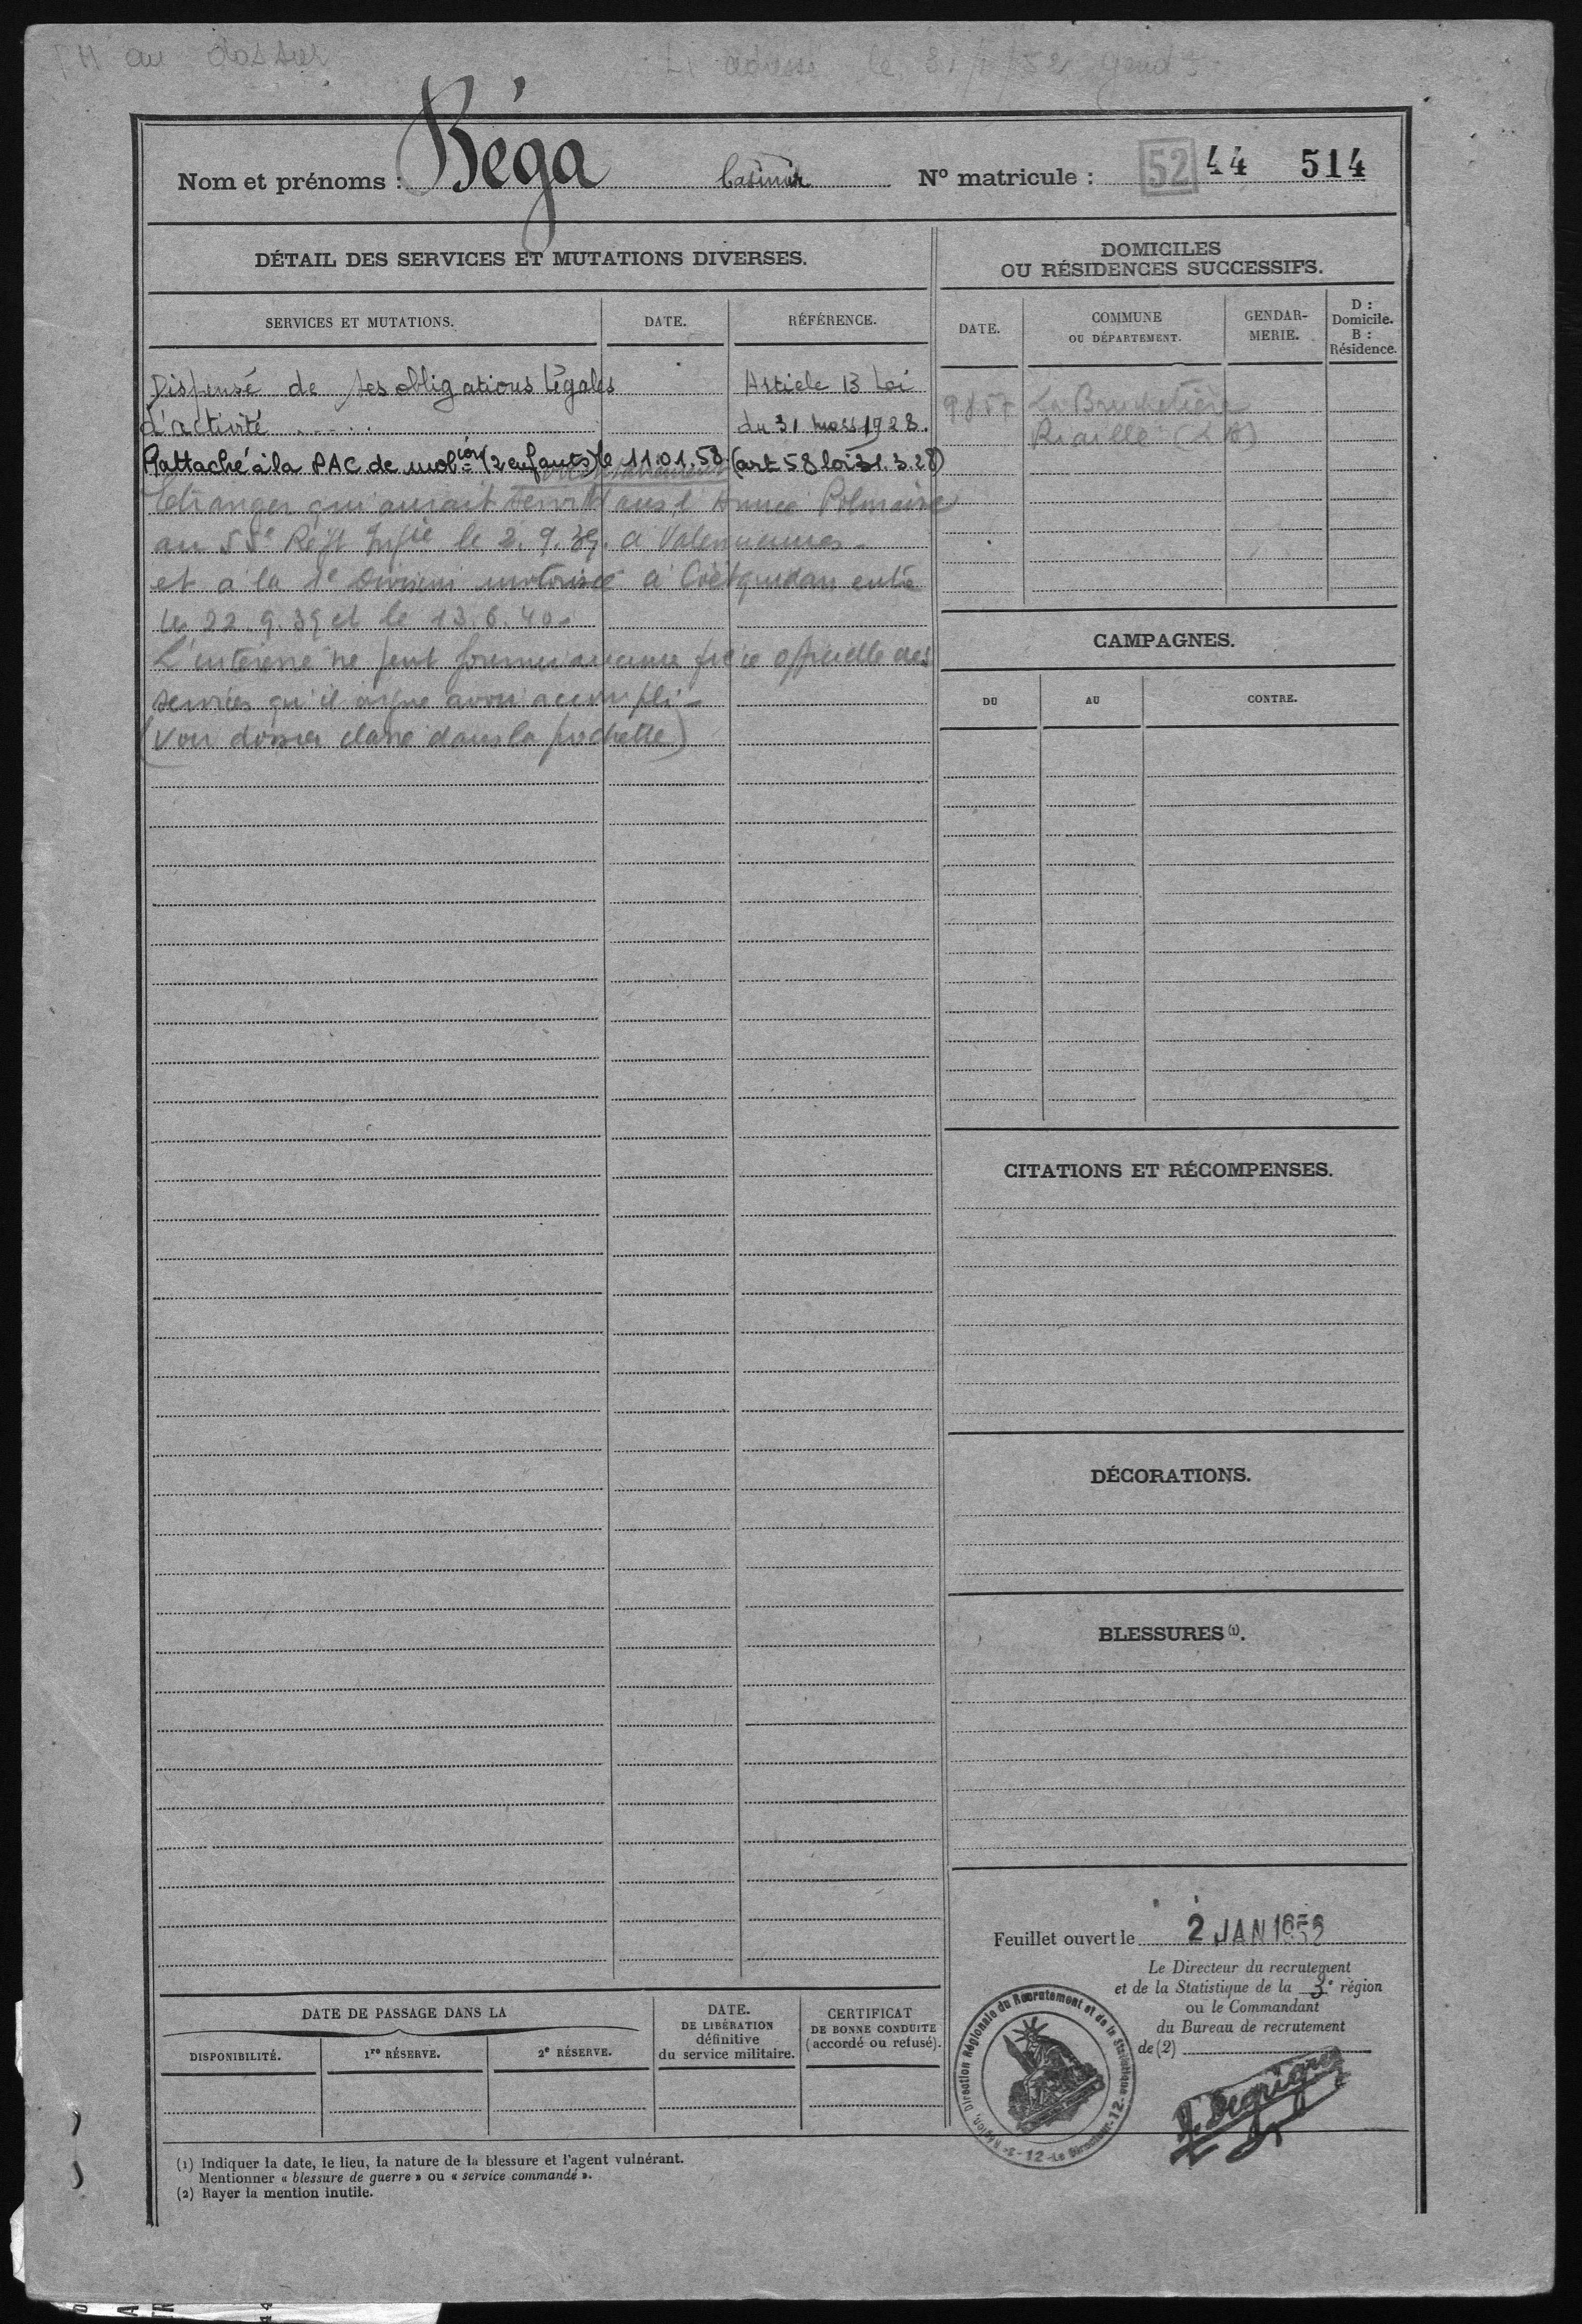 FH au dossier
Li adressé le 31/1/52 gend
Nom et prénoms : Béga Casimir N° matricule : 52 44 514
DÉTAIL DES SERVICES ET MUTATIONS DIVERSES.
SERVICES ET MUTATIONS. DATE. RÉFÉRENCE.
Dispensé de ses obligations légales Article 13 Loi
d'activité ..... du 31 mars 1928.
Rattaché à la PAC de mob=ion (2 enfants) le 11.01.58 (art 58 loi 31.3.28)
Etranger qui aurait servi dans l'Armée Polonaise
au 55e Régt Inftie le 2.9.39. à Valenciennes
et à la 1e Division motorisée à Coëtquidan entre
le 22.9.39 et le 13.6.40.
L'intéressé ne peut fournir aucune pièce officielle des
services qu'il argue avoir accompli -
(Voir dossier classé dans la pochette)
DOMICILES
OU RÉSIDENCES SUCCESSIFS.
DATE. COMMUNE
OU DÉPARTEMENT. GENDAR-
MERIE. D :
Domicile.
B :
Résidence.
La
Riaillé
CAMPAGNES.
DU AU CONTRE.
CITATIONS ET RÉCOMPENSES.
DÉCORATIONS.
BLESSURES (1).
Feuillet ouvert le 2 JAN 1952
Le Directeur du recrutement
et de la Statistique de la 3e région
ou le Commandant
du Bureau de recrutement
de (2)
Direction Régionale du Recrutement et de la Statistique - 12 - Le Directeur - 12 -
DATE DE PASSAGE DANS LA
DISPONIBILITÉ. 1re RÉSERVE. 2e RÉSERVE.
DATE.
DE LIBÉRATION
définitive
du service militaire.
CERTIFICAT
DE BONNE CONDUITE
(accordé ou refusé).
(1) Indiquer la date, le lieu, la nature de la blessure et l'agent vulnérant.
Mentionner « blessure de guerre » ou « service commandé ».
(2) Rayer la mention inutile.